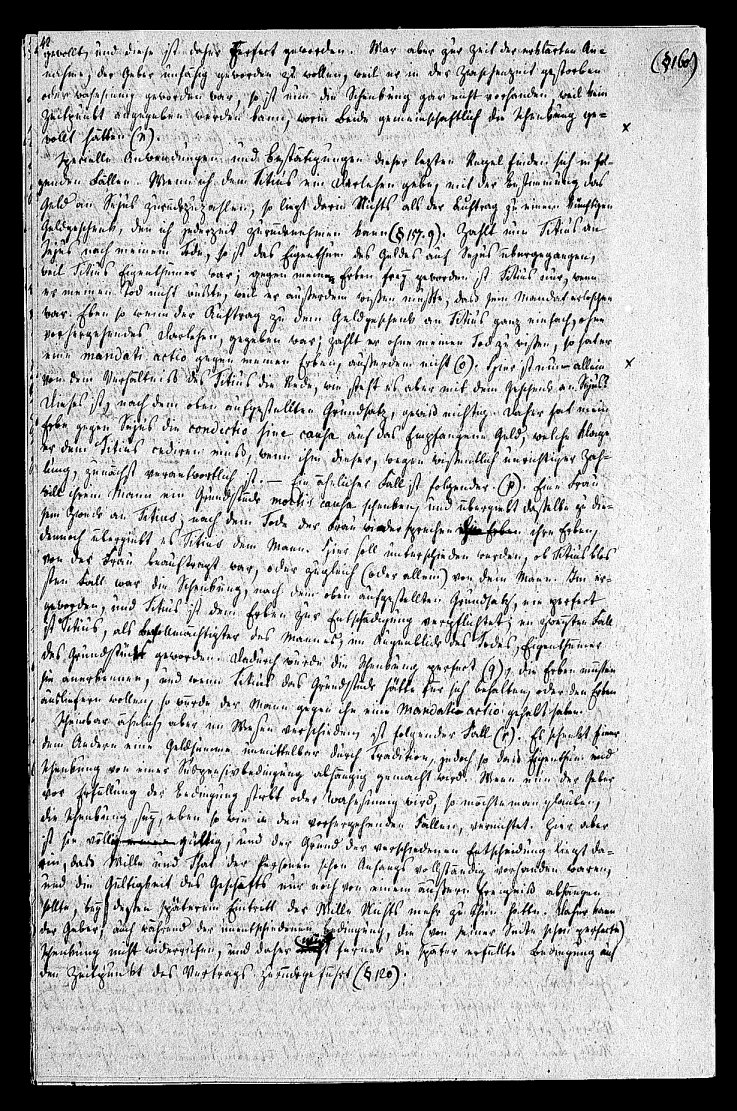 40
gewollt, und diese ist daher perfect geworden. War aber zur Zeit der erklärten An-
nahme, der Geber unfähig geworden zu wollen, weil er in der Zwischenzeit gestorben
oder wahnsinnig geworden war, so ist nun die Schenkung gar nicht vorhanden weil kein
Zeitpunkt angegeben werden kann, worin beide gemeinschaftlich die Schenkung ge-
wollt hätten (n).
(§ 160)
x
Specielle Anwendungen und Bestätigungen dieser letzten Regel finden sich in fol-
genden Fällen. Wenn ich dem Titius ein Darlehen gebe, mit der Bestimmung, das
Geld an Sejus zurückzuzahlen, so liegt darin Nichts als der Auftrag zu einem künftigen
Geldgeschenk, den ich jederzeit zurücknehmen kann (§ 157. g). Zahlt nun Titius an
Sejus nach meinem Tode, so ist das Eigenthum des Geldes auf Sejus übergegangen,
weil Titius Eigenthümer war; gegen meine Erben frey geworden ist Titius nur, wenn
er meinen Tod nicht wußte, weil er außerdem wissen mußte, daß sein Mandat erloschen
war. Eben so wenn der Auftrag zu dem Geldgeschenk an Titius ganz einfach, ohne
vorhergehendes Darlehen, gegeben war; zahlt er ohne meinen Tod zu wissen, so hat er
eine mandati actio gegen meinen Erben, außerdem nicht (o). Hier ist nun allein
x
von dem Verhältniß des Titius die Rede, wie steht es aber mit dem Geschenk an Sejus?
Dieses ist, nach dem oben aufgestellten Grundsatz, gewiß nichtig. Daher hat mein
Erbe gegen Sejus die condictio sine causa auf das empfangene Geld, welche Klage
er dem Titius cediren muß, wenn ihm dieser, wegen wissentlich unrichtiger Zah-
lung, zunächst verantwortlich ist. — Ein ähnlicher Fall ist folgender (p). Eine Frau
will ihrem Mann ein Grundstück mortis causa schenken, und übergiebt dasselbe zu die-
sem Zweck an Titius; nach dem Tode der Frau widersprechen ihre Erben,
dennoch übergiebt es Titius dem Mann. Hier soll unterschieden werden, ob Titius blos
von der Frau beauftragt war, oder zugleich (oder allein) von dem Mann. Im er-
sten Fall war die Schenkung, nach dem oben aufgestellten Grundsatz, nie perfect
geworden, und Titius ist dem Erben zur Entschädigung verpflichtet; im zweyten Fall
ist Titius, als Bevollmächtigter des Mannes, im Augenblick des Todes, Eigenthümer
des Grundstücks geworden. Dadurch wurde die Schenkung perfect (q), die Erben müssen
sie anerkennen, und wenn Titius das Grundstück hätte für sich behalten, oder den Erben
ausliefern wollen, so würde der Mann gegen ihn eine Mandati actio gehabt haben.
Scheinbar ähnlich, aber im Wesen verschieden, ist folgender Fall (r). Es schenkt Einer
dem Andern eine Geldsumme unmittelbar durch Tradition, jedoch so daß Eigenthum und
Schenkung von einer Suspensivbedingung abhängig gemacht wird. Wenn nun der Geber
vor Erfüllung der Bedingung stirbt oder wahnsinnig wird, so möchte man glauben,
die Schenkung sey, eben so wie in den vorhergehenden Fällen, vernichtet. Hier aber
ist sie völlig gültig, und der Grund der verschiedenen Entscheidung liegt da-
rin, daß Wille und That der Personen schon Anfangs vollständig vorhanden waren,
und die Gültigkeit des Geschäfts nur noch von einem äußern Ereigniß abhängen
sollte, bey dessen späterem Eintritt der Wille Nichts mehr zu thun hatte. Daher kann
der Geber, auch während der unentschiedenen Bedingung, die von seiner Seite schon perfecte
Schenkung nicht widerrufen, und daher wird ferner die später erfüllte Bedingung auf
den Zeitpunkt des Vertrags zurückgeführt (§ 120).